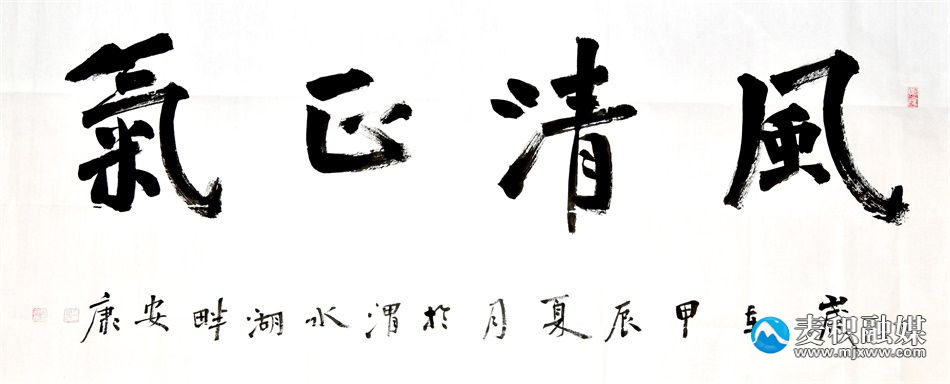 風清正氣
歲在甲辰夏月於渭水湖畔安康
麦积融媒
www.mjxww.com